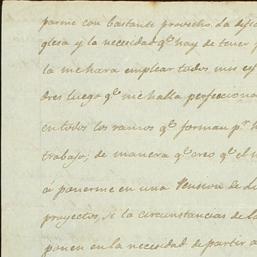 parme con bastante provecho. La dific
glesa y la necesidad q.e hay de tener p
la me hara emplear todos mis esf
dres luego q.e me halla perfecciona
en todos los ramos q.e forman p.r
trabajo; de manera q.e creo q.e el m
á ponerme en una Pension de Lo
proyectos, si la circunstancias de
ponen en la necesidad de partir a